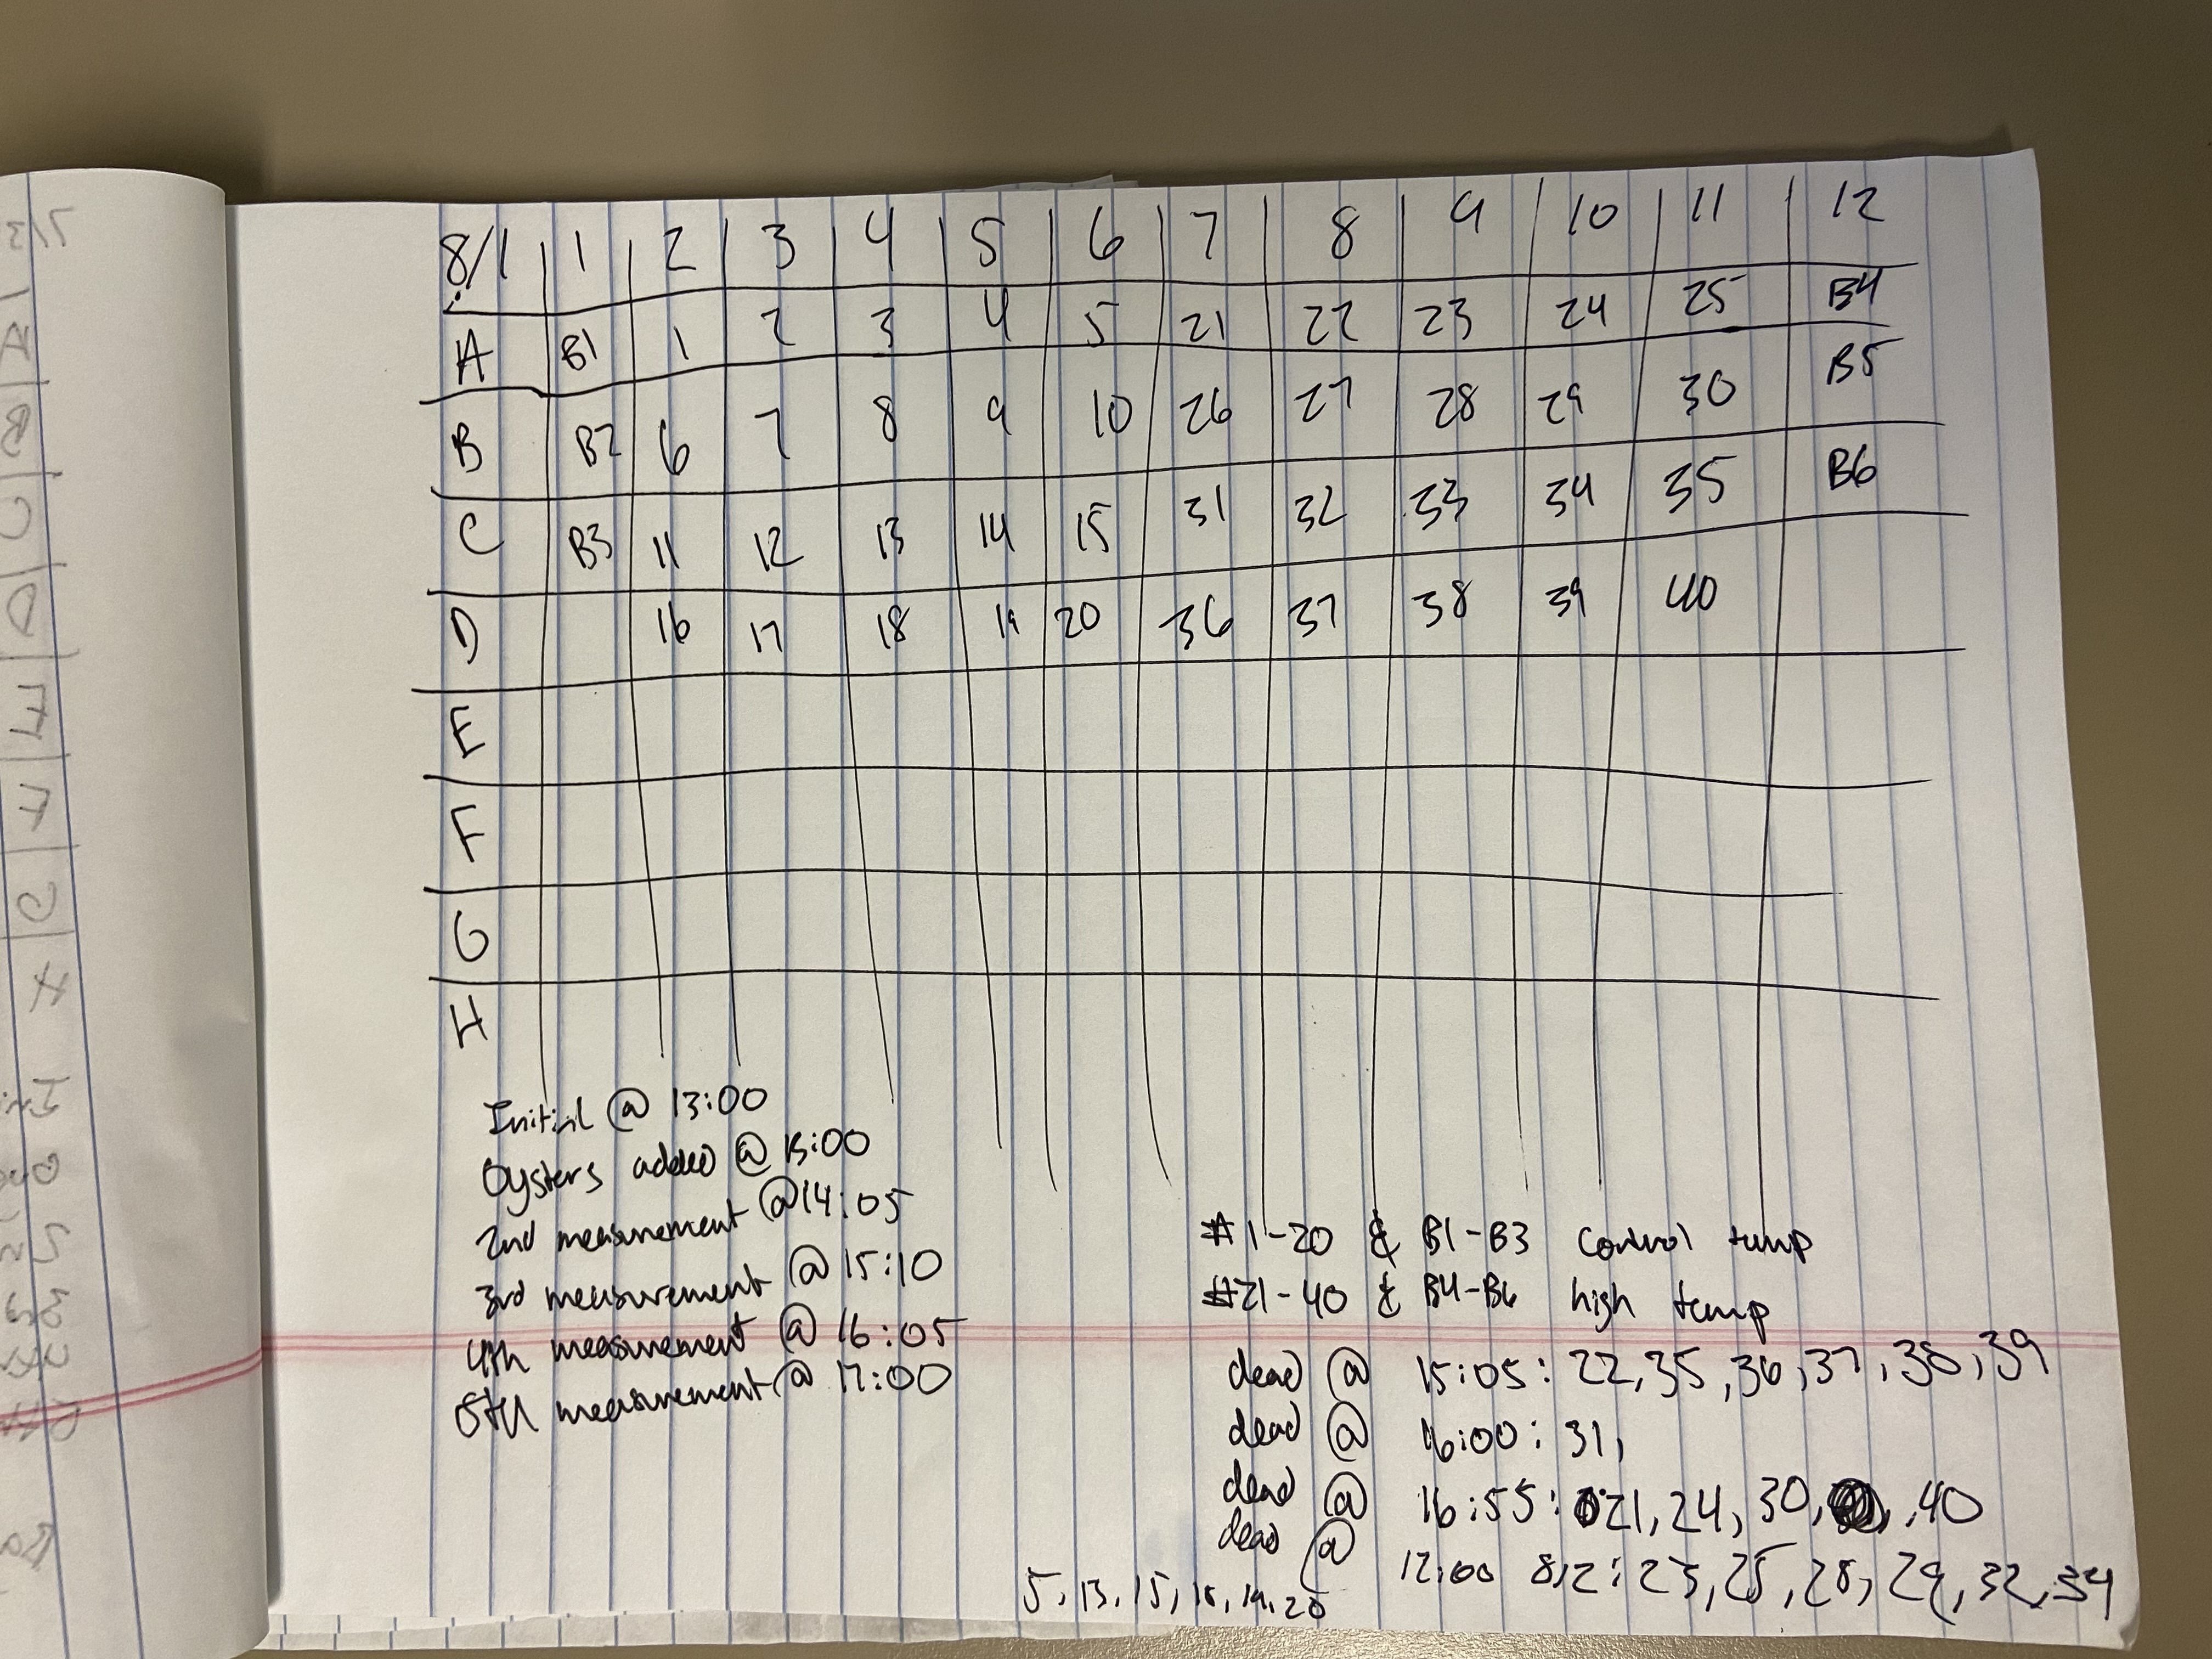 8/1 1 2 3 4 5 6 7 8 9 10 11 12
A B1 1 2 3 4 5 21 22 23 24 25 B4
B B2 6 7 8 9 10 26 27 28 29 30 B5
C B3 11 12 13 14 15 31 32 33 34 35 B6
D 16 17 18 19 20 36 37 38 39 40
E
F
G
H
Initial @ 13:00
Oysters added @ :00
2nd measurement @ 14:05
3rd measurement @ 15:10
4th measurement @ 16:05
5th measurement @ 17:00
#1-20 & B1-B3 control temp
#21-40 & B4-B6 high temp
dead @ 15:05: 22, 35, 36, 37, 38, 39
dead @ 16:00: 31,
dead @ 16:55: 21, 24, 30, , 40
dead @ 12:00 8/2: 23, 25, 28, 29, 32, 34
5, 13, 15, 19, 20